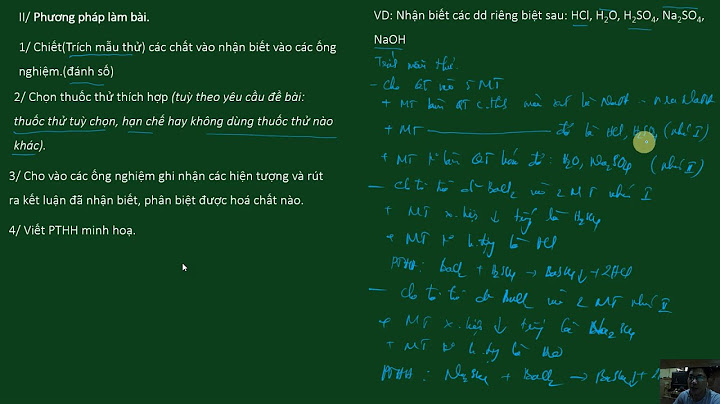 II/ Phương pháp làm bài.
1/ Chiết(Trích mẫu thử) các chất vào nhận biết vào các ống
nghiệm.(đánh số)
2/ Chọn thuốc thử thích hợp (tuỳ theo yêu cầu đề bài:
thuốc thử tuỳ chọn, hạn chế hay không dùng thuốc thử nào
khác).
3/ Cho vào các ống nghiệm ghi nhận các hiện tượng và rút
ra kết luận đã nhận biết, phân biệt được hoá chất nào.
4/ Viết PTHH minh hoạ.
VD: Nhận biết các dd riêng biệt sau: HCl, H₂O, H₂SO₄, Na₂SO₄,
NaOH
Trích mẫu thử.
- Cho QT vào 5 MT
+ MT làm QT c. xanh là NaOH
+ MT đỏ là HCl, H₂SO₄ (nhóm I)
+ MT k làm QT hoá đỏ: H₂O, Na₂SO₄ (nhóm II)
- Cho dd BaCl₂ vào 2 MT nhóm I
+ MT x. hiện ↓ trắng là H₂SO₄
+ MT k h. tượng là HCl
PTHH: BaCl₂ + H₂SO₄ → BaSO₄↓ + 2HCl
- Cho dd BaCl₂ vào 2 MT nhóm II
+ MT x. hiện ↓ trắng là Na₂SO₄
+ MT k h. tượng là H₂O
PTHH: Na₂SO₄ + BaCl₂ → BaSO₄↓ + 2